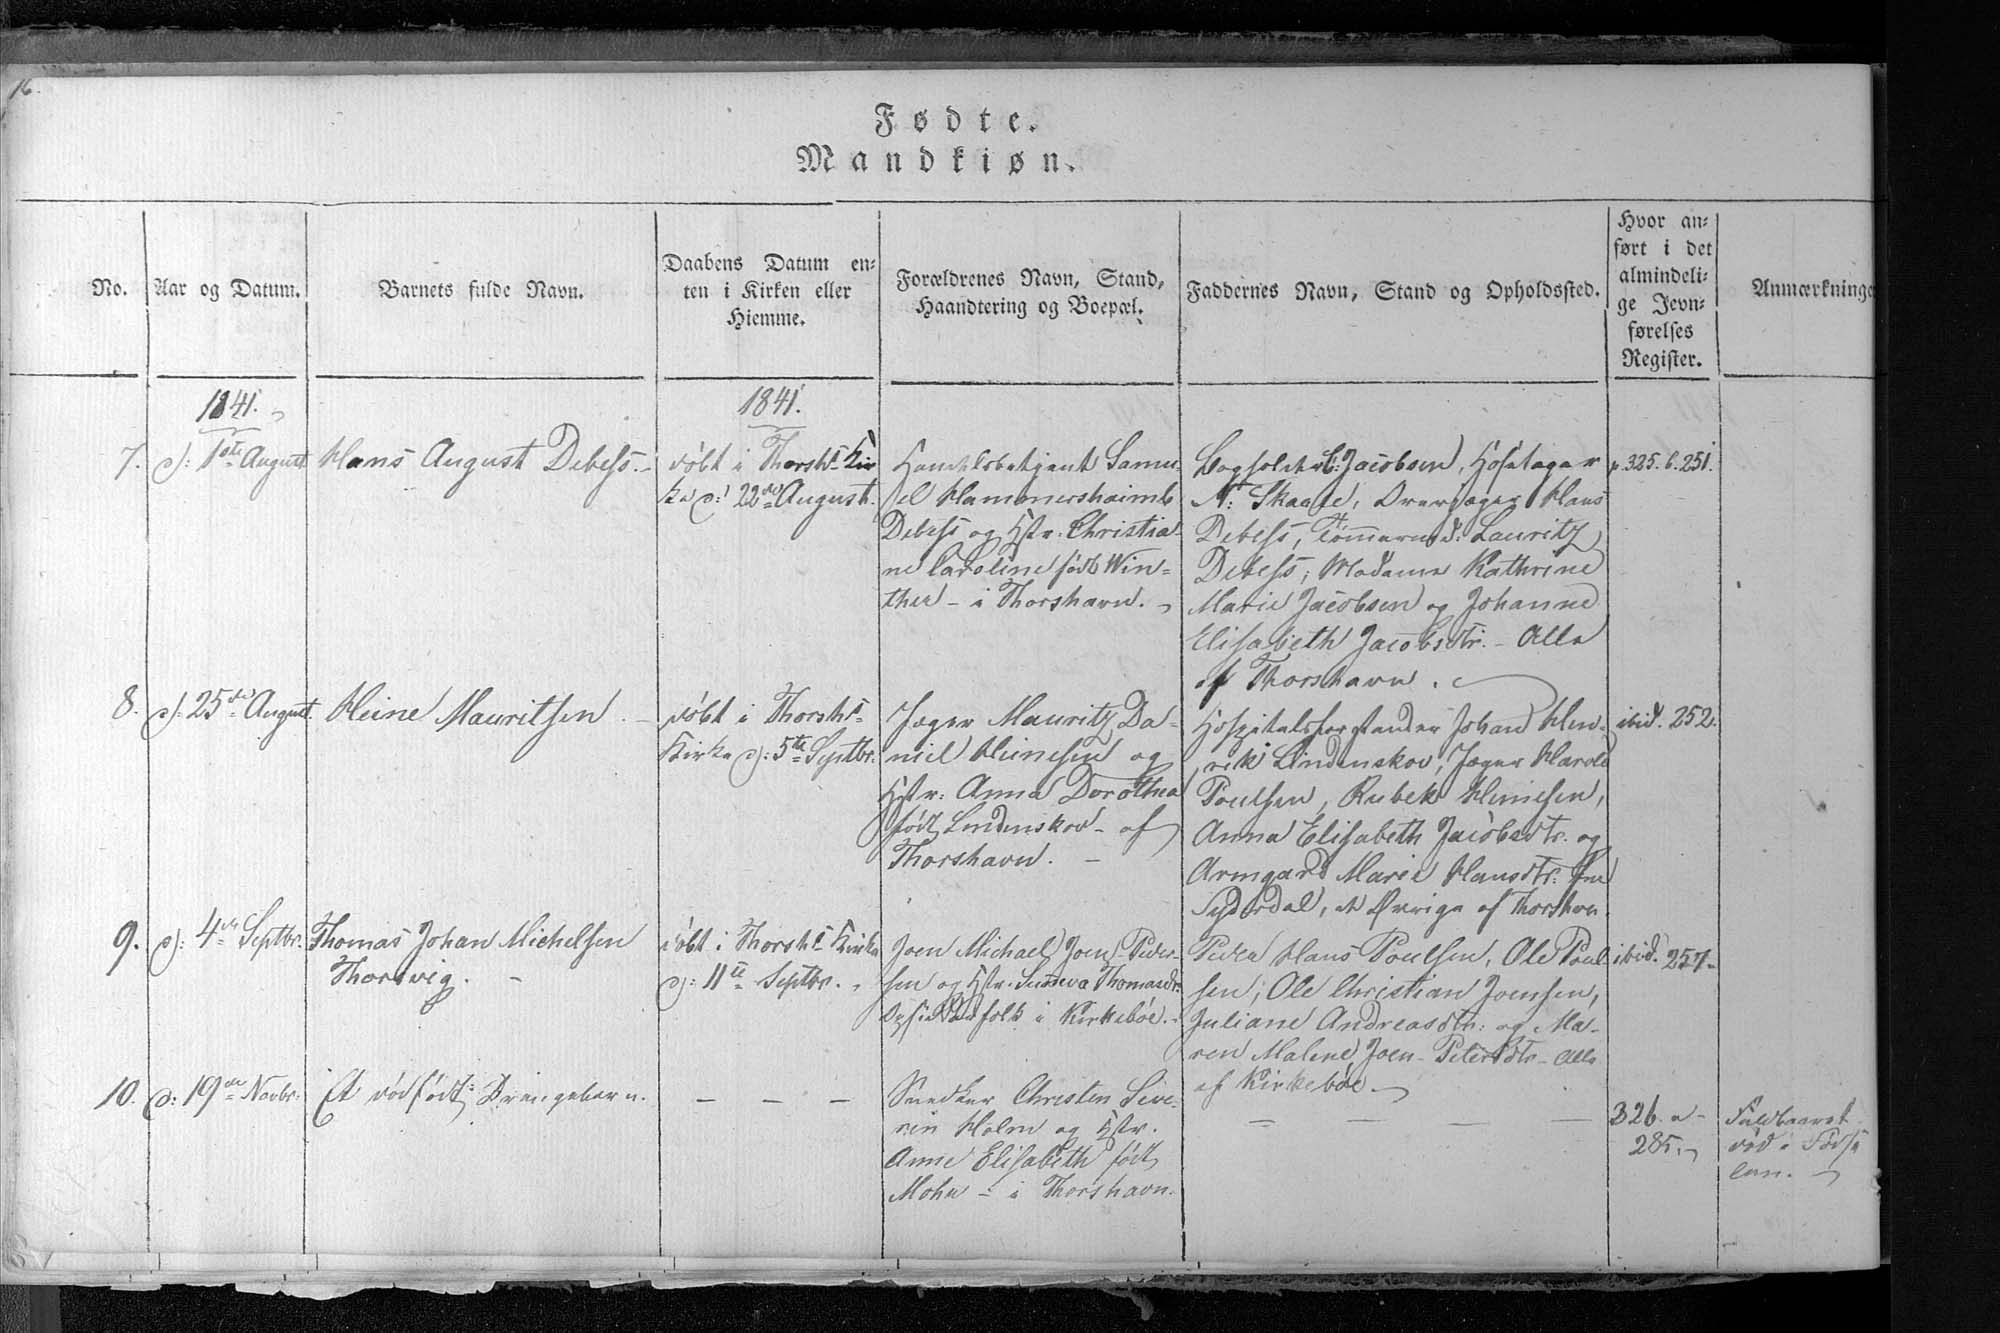 16.
Fødte.
Mandkiøn.
No.
Aar og Datum.
Barnets fulde Navn.
Daabens Datum en-
ten i Kirken eller
Hiemme.
Forældrenes Navn, Stand,
Haandtering og Boepæl.
Faddernes Navn, Stand og Opholdssted.
Hvor an-
ført i det
almindeli-
ge Jevn-
førelses
Register.
Anmærkninge
1841.
1841.
7.
d: 1ste August
Hans August Debess.
döbt i Thorshs Kir
ke d: 22de August.
Handelsbetjent Samu-
el Hammershaimb
Debess og Hstr. Christia-
ne Caroline födt Win-
ther - i Thorshavn.
Bogholder C: Jacobsen,
N: Skaale, Hans
Debess, Tömmermd. Lauritz
Debess, Madame Kathrine
Marie Jacobsen og Johanne
Elisabeth Jacobsdtr. - Alle
af Thorshavn.
p. 325. b. 251.
8.
d: 25de August.
Heine Mauritsen
döbt i Thorshs
Kirke d: 5te Septbr.
Jæger Mauritz Da-
niel Heinesen og
Hstr: Anna Dorothea
födt Lindenskov - af
Thorshavn.
Hospitalsforstander Johan Hen-
rik Lindenskov, Jæger Harold
Poulsen, Rubek Heinesen,
Anna Elisabeth Jacobsdtr. og
Armgard Marie Hansdtr: fra
Syderdal, de Øvrige af Thorshavn
ibid. 252.
9.
d: 4de Septbr.
Thomas Johan Michelsen
Thorsvig.
döbt i Thorshs Kirke
d: 11te Septbr.
Joen Michael Joen-Peder-
sen og Hstr. Sunneva Thomasdr.
folk i Kirkeböe.
Peder Hans Poulsen, Ole Poul
sen, Ole Christian Joensen,
Juliane Andreasdtr: og Ma-
ren Malene Joen-Petersdtr - Alle
af Kirkeböe.
ibid. 257.
10.
d: 19de Novbr.
Et dödfödt Drengebarn.
Snedker Christen Seve-
rin Holm og Hstr.
Anne Elisabeth födt
Mohr - i Thorshavn.
326. a
285.
Fuldbaaret
död i Födse
len.